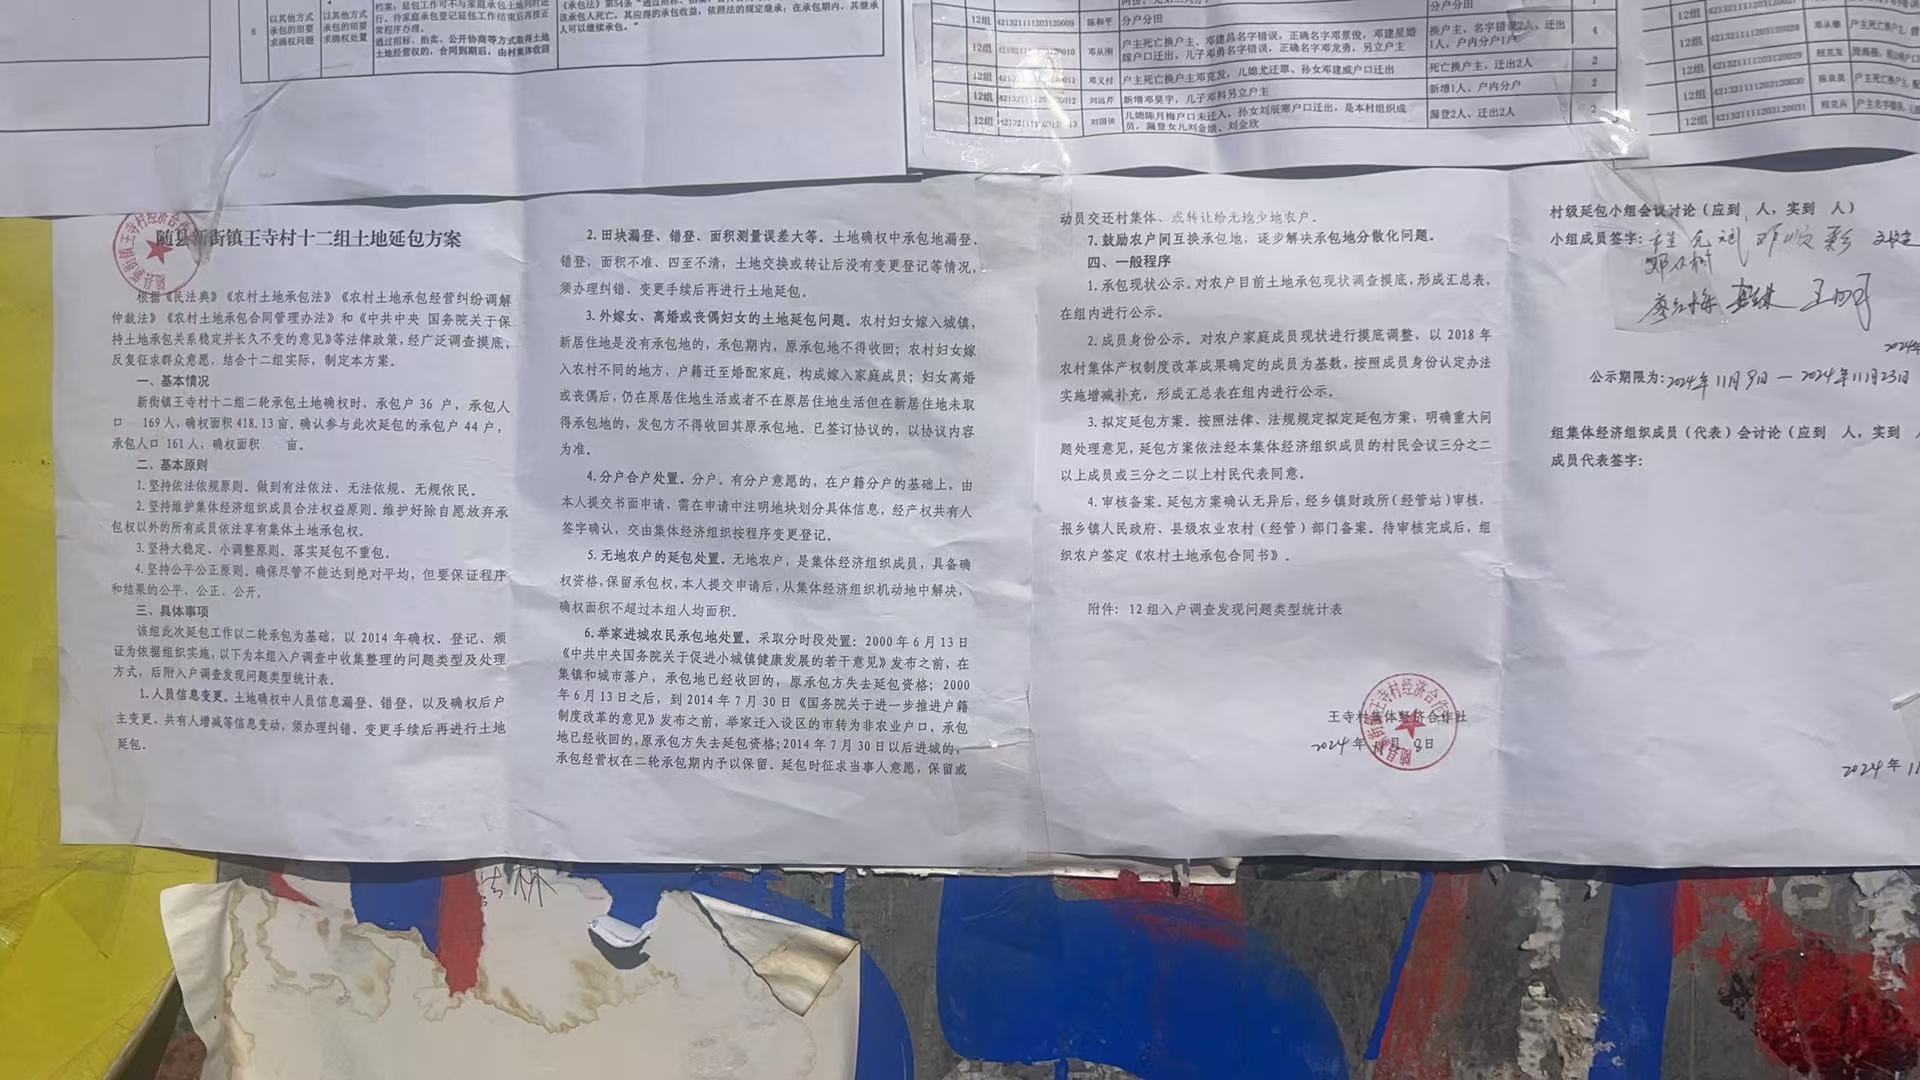 8
以其他方式
承包的田要
求确权问题
以其他方式
承包的田要
求确权处置
档案，延包工作可不与家庭承包土地同时进
行，待家庭承包登记延包工作结束后再按正
常程序办理。
通过招标、拍卖、公开协商等方式取得土地
土地经营权的，合同到期后，由村集体收回
《承包法》第54条“通过招标、拍卖、
该承包人死亡，其应得的承包收益，依照法的规定继承；在承包期内，其继承
人可以继续承包。”
12组 421321111203120009 陈和平 分户分田 分户分田
12组 邓从刚 户主死亡换户主、邓建昌名字错误，正确名字邓景俊，邓建星婚
嫁户口迁出，儿子邓勇名字错误，正确名字邓龙勇，另立户主 换户主，名字错误2人、迁出
1人，户内分户1户 4
12组 邓义付 户主死亡换户主邓克发，儿媳尤迁翠、孙女邓建威户口迁出 死亡换户主、迁出2人 2
12组 刘远芹 新增邓昊宇，儿子邓科另立户主 新增1人、户内分户 2
12组 刘国依 儿媳陈月梅户口未迁入，孙女刘辰寒户口迁出，是本村组织成
员，漏登女儿刘金娥、刘金欣 漏登2人、迁出2人 2
12组 421321111203120028
12组 421321111203120029
12组 421321111203120030 陈良奥
12组 421321111203120031
随县新街镇王寺村十二组土地延包方案
根据《民法典》《农村土地承包法》《农村土地承包经营纠纷调解
仲裁法》《农村土地承包合同管理办法》和《中共中央 国务院关于保
持土地承包关系稳定并长久不变的意见》等法律政策，经广泛调查摸底，
反复征求群众意愿，结合十二组实际，制定本方案。
一、基本情况
新街镇王寺村十二组二轮承包土地确权时，承包户 36 户，承包人
口 169 人，确权面积 418.13 亩。确认参与此次延包的承包户 44 户，
承包人口 161 人，确权面积 亩。
二、基本原则
1.坚持依法依规原则。做到有法依法、无法依规、无规依民。
2.坚持维护集体经济组织成员合法权益原则。维护好除自愿放弃承
包权以外的所有成员依法享有集体土地承包权。
3.坚持大稳定、小调整原则。落实延包不重包。
4.坚持公平公正原则。确保尽管不能达到绝对平均，但要保证程序
和结果的公平、公正、公开。
三、具体事项
该组此次延包工作以二轮承包为基础，以 2014 年确权、登记、颁
证为依据组织实施，以下为本组入户调查中收集整理的问题类型及处理
方式，后附入户调查发现问题类型统计表。
1.人员信息变更。土地确权中人员信息漏登、错登，以及确权后户
主变更、共有人增减等信息变动，须办理纠错、变更手续后再进行土地
延包。
2.田块漏登、错登、面积测量误差大等。土地确权中承包地漏登、
错登，面积不准、四至不清，土地交换或转让后没有变更登记等情况，
须办理纠错、变更手续后再进行土地延包。
3.外嫁女、离婚或丧偶妇女的土地延包问题。农村妇女嫁入城镇，
新居住地是没有承包地的，承包期内，原承包地不得收回；农村妇女嫁
入农村不同的地方，户籍迁至婚配家庭，构成嫁入家庭成员；妇女离婚
或丧偶后，仍在原居住地生活或者不在原居住地生活但在新居住地未取
得承包地的，发包方不得收回其原承包地。已签订协议的，以协议内容
为准。
4.分户合户处置。分户。有分户意愿的，在户籍分户的基础上，由
本人提交书面申请，需在申请中注明地块划分具体信息，经产权共有人
签字确认，交由集体经济组织按程序变更登记。
5.无地农户的延包处置。无地农户，是集体经济组织成员，具备确
权资格，保留承包权，本人提交申请后，从集体经济组织机动地中解决，
确权面积不超过本组人均面积。
6.举家进城农民承包地处置。采取分时段处置：2000 年 6 月 13 日
《中共中央国务院关于促进小城镇健康发展的若干意见》发布之前，在
集镇和城市落户，承包地已经收回的，原承包方失去延包资格；2000
年 6 月 13 日之后，到 2014 年 7 月 30 日《国务院关于进一步推进户籍
制度改革的意见》发布之前，举家迁入设区的市转为非农业户口，承包
地已经收回的，原承包方失去延包资格；2014 年 7 月 30 日以后进城的，
承包经营权在二轮承包期内予以保留。延包时征求当事人意愿，保留或
动员交还村集体、或转让给无地少地农户。
7.鼓励农户间互换承包地，逐步解决承包地分散化问题。
四、一般程序
1.承包现状公示。对农户目前土地承包现状调查摸底，形成汇总表，
在组内进行公示。
2.成员身份公示。对农户家庭成员现状进行摸底调整，以 2018 年
农村集体产权制度改革成果确定的成员为基数，按照成员身份认定办法
实施增减补充，形成汇总表在组内进行公示。
3.拟定延包方案。按照法律、法规规定拟定延包方案，明确重大问
题处理意见，延包方案依法经本集体经济组织成员的村民会议三分之二
以上成员或三分之二以上村民代表同意。
4.审核备案。延包方案确认无异后，经乡镇财政所（经管站）审核，
报乡镇人民政府、县级农业农村（经管）部门备案。待审核完成后，组
织农户签定《农村土地承包合同书》。
附件：12 组入户调查发现问题类型统计表
王寺村集体经济合作社
2024 年 11 月 8 日
村级延包小组会议讨论（应到 人，实到 人）
小组成员签字：
2024年
公示期限为：2024年11月9日—2024年11月23日
组集体经济组织成员（代表）会讨论（应到 人，实到
成员代表签字：
2024 年 11